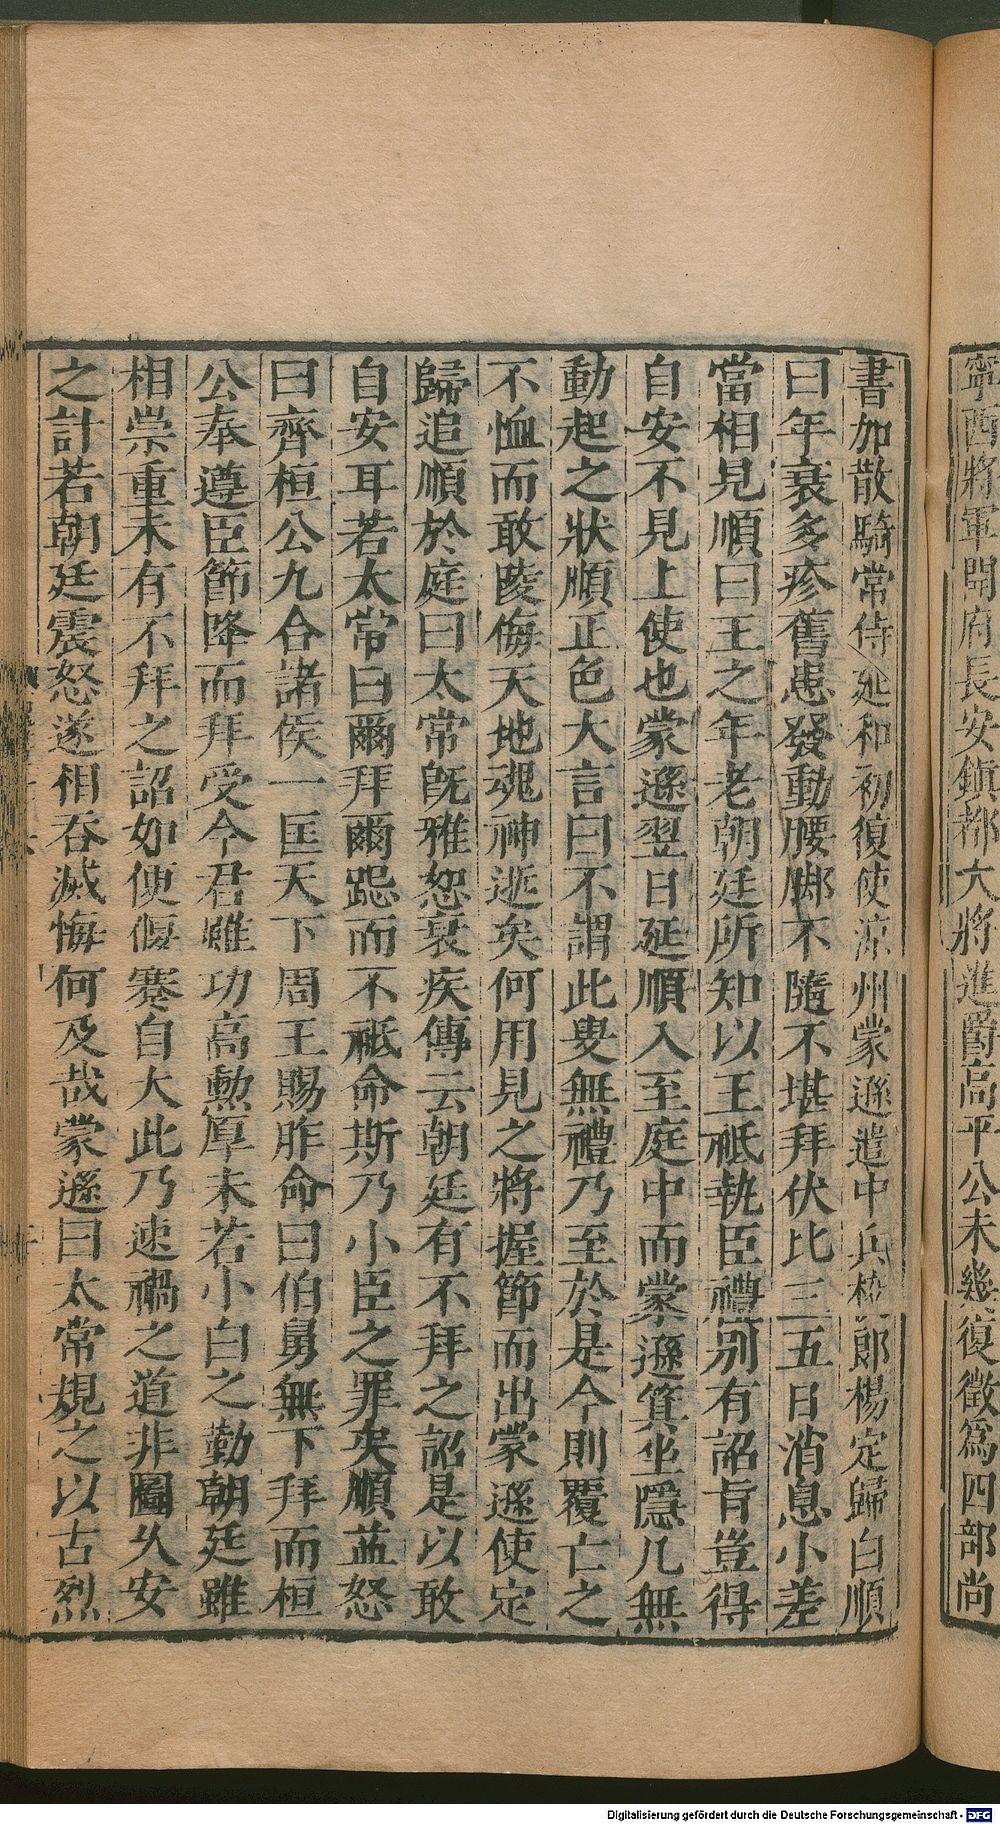 寧西將軍開府長安鎮都大將進爵高平公未幾復徵爲四部尚
書加散騎常侍延和初復使涼州蒙遜遣中兵校郎楊定歸白順
曰年衰多疹舊患發動腰脚不隨不堪拜伏比三五日消息小差
當相見順曰王之年老朝廷所知以王祗執臣禮別有詔旨豈得
自安不見上使也蒙遜翌日延順入至庭中而蒙遜箕坐隱几無
動起之狀順正色大言曰不謂此叟無禮乃至於是今則覆亡之
不恤而敢陵侮天地魂神逝矣何用見之將握節而出蒙遜使定
歸追順於庭曰太常旣雅恕衰疾傳云朝廷有不拜之詔是以敢
自安耳若太常曰爾拜爾跽而不祗命斯乃小臣之罪矣順益怒
曰齊桓公九合諸侯一匡天下周王賜胙命曰伯舅無下拜而桓
公奉遵臣節降而拜受今君雖功高勲厚未若小白之勤朝廷雖
相崇重未有不拜之詔如便偃蹇自大此乃速禍之道非圖久安
之計若朝廷震怒遂相吞滅悔何及哉蒙遜曰太常規之以古烈
Digitalisierung gefördert durch die Deutsche Forschungsgemeinschaft - DFG